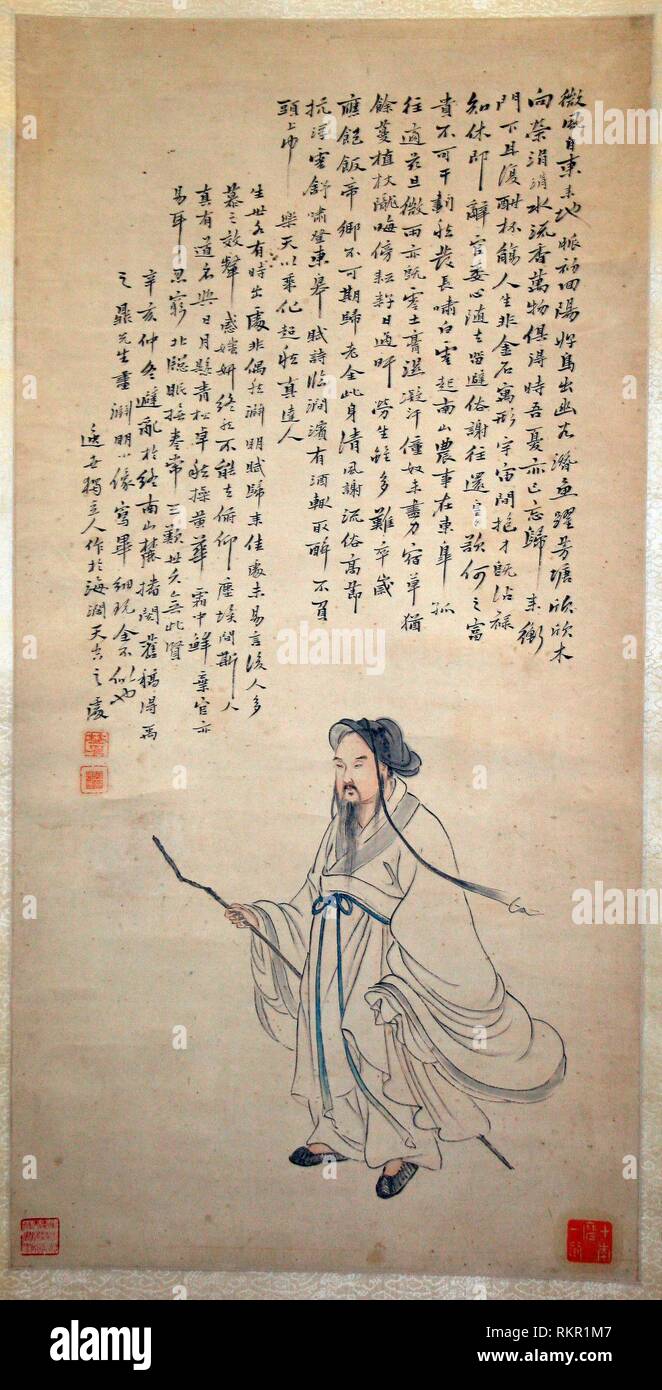 微風自東來地脈初回陽好鳥出幽谷潛魚躍芳塘欣欣木
向榮涓涓水流香萬物俱得時吾憂亦已忘歸來衡
門下且復酣杯觴人生非金石寓形宇宙間抱才既沾祿
知休即辭官委心隨去留避俗謝往還何之富
貴不可干然長嘯白雲起南山農事在東皐孤
往適茲旦微雨亦既零土膏濕凝汗僮奴未盡力宿草猶
餘蔓植杖隴畮傍耘耔日過旰勞生雖多難卒歲
應飽飯帝鄉不可期歸老全此身清風謝流俗高節
抗浮雲舒嘯登東皋賦詩臨澗濱有酒輒取醉不負
頭上巾 樂天以乘化超然真達人
生世各有時出處非偶然淵明賦歸來佳處未易言後人多
慕之效顰惑媸妍終然不能去俯仰塵埃間斯人
真有道名與日月懸青松卓然操黃華霜中鮮棄官亦
易耳忍窮北窓眠撫卷常三歎世久無此賢
辛亥仲冬避亂於終南山麓閱舊稿得禹
之鼎先生畫淵明小像寫畢細玩全不似也
遯世獨立人作於海濶天空之處
alamy
Image ID: RKR1M7
www.alamy.com